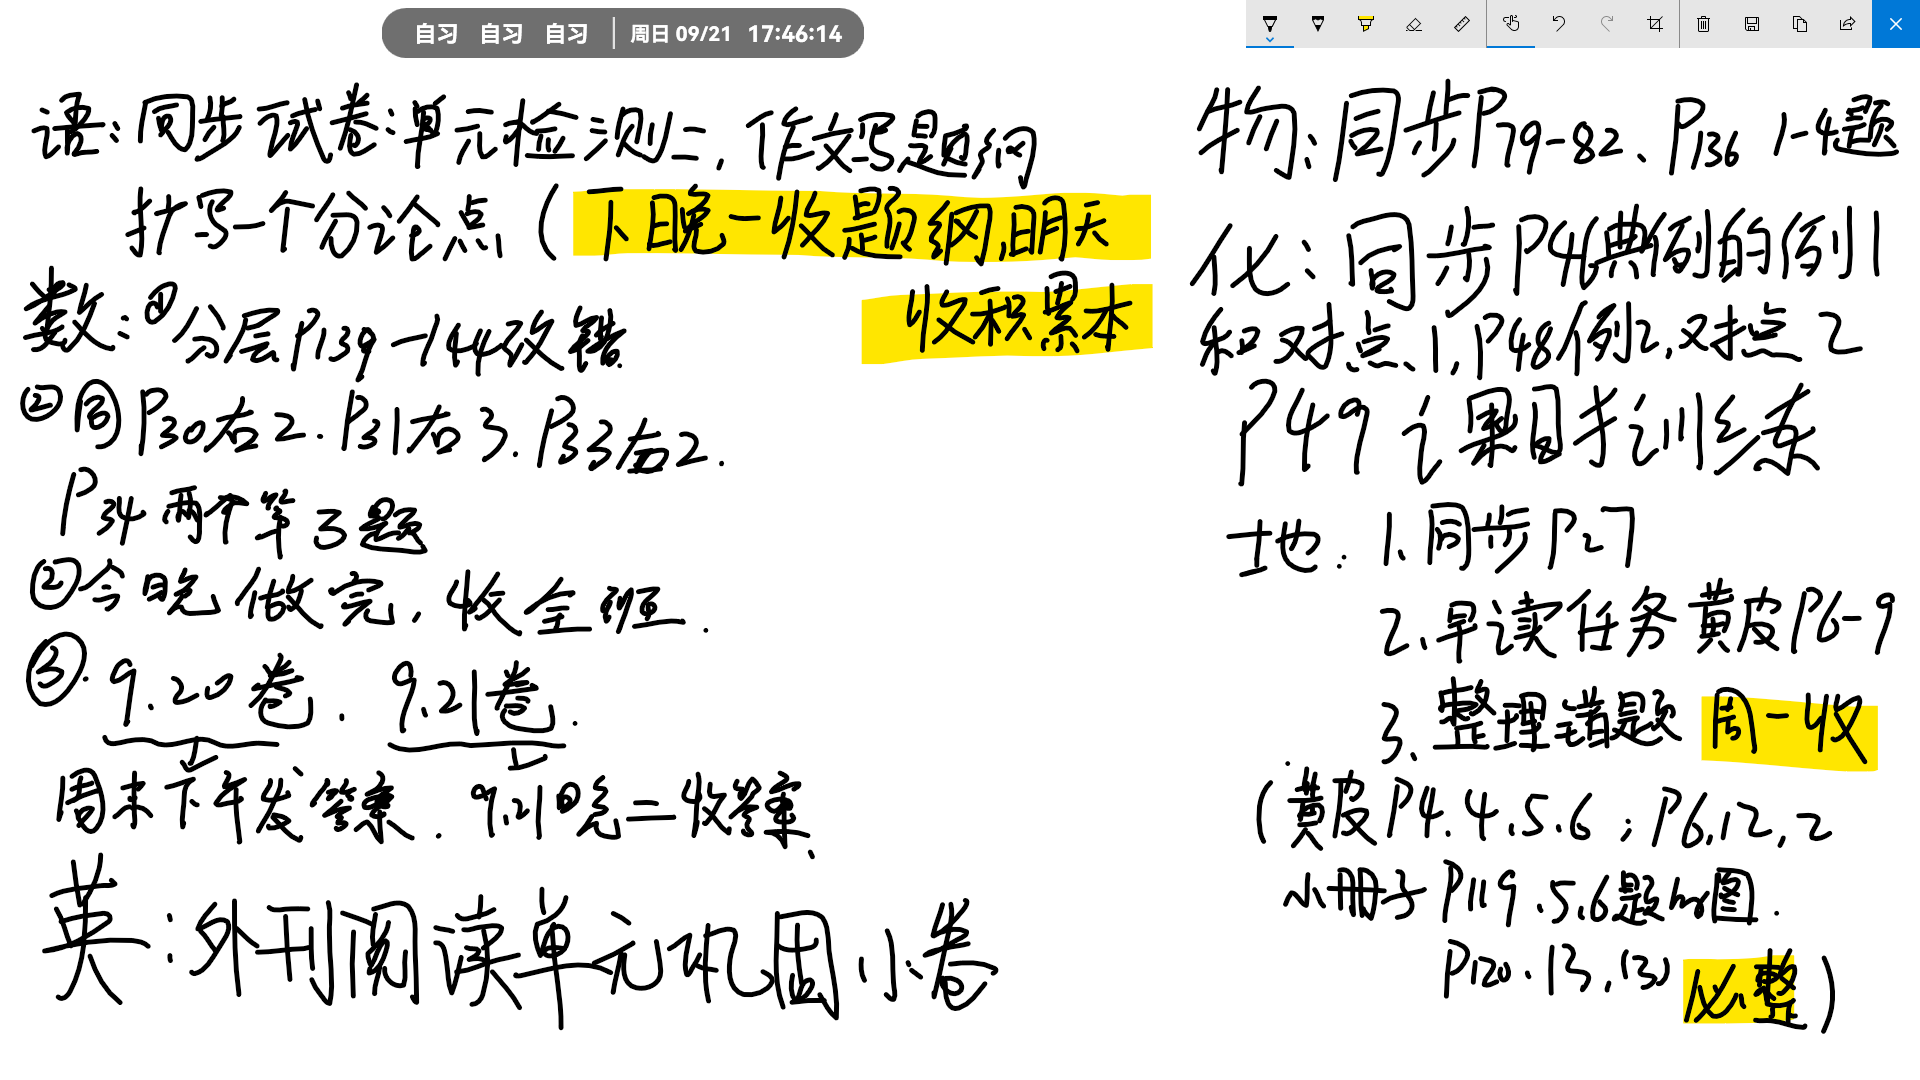 自习 自习 自习 周日 09/21 17:46:14
语:同步试卷:单元检测二,作文写题纲
抄写一个分论点(下晚一收题纲,明天
收积累本
数:①分层P139-144改错.
②同P30右2.P31右3.P33右2.
P34两个第3题
②今晚做完,收全班.
③.9.20卷.9.21卷.
周末下午发答案.9.21日晚二收答案.
英:外刊阅读单元巩固小卷
物:同步P79-82、P136 1-4题
化:同步P46典例的例1
和对点1,P48例2,对点2
P49 课时训练
地:1、同步P27
2、早读任务黄皮P6-9
3、整理错题 周一收
(黄皮P4.4,5.6;P6,12,2
小册子P119.5,6题的图.
P120.13,(3)必整)